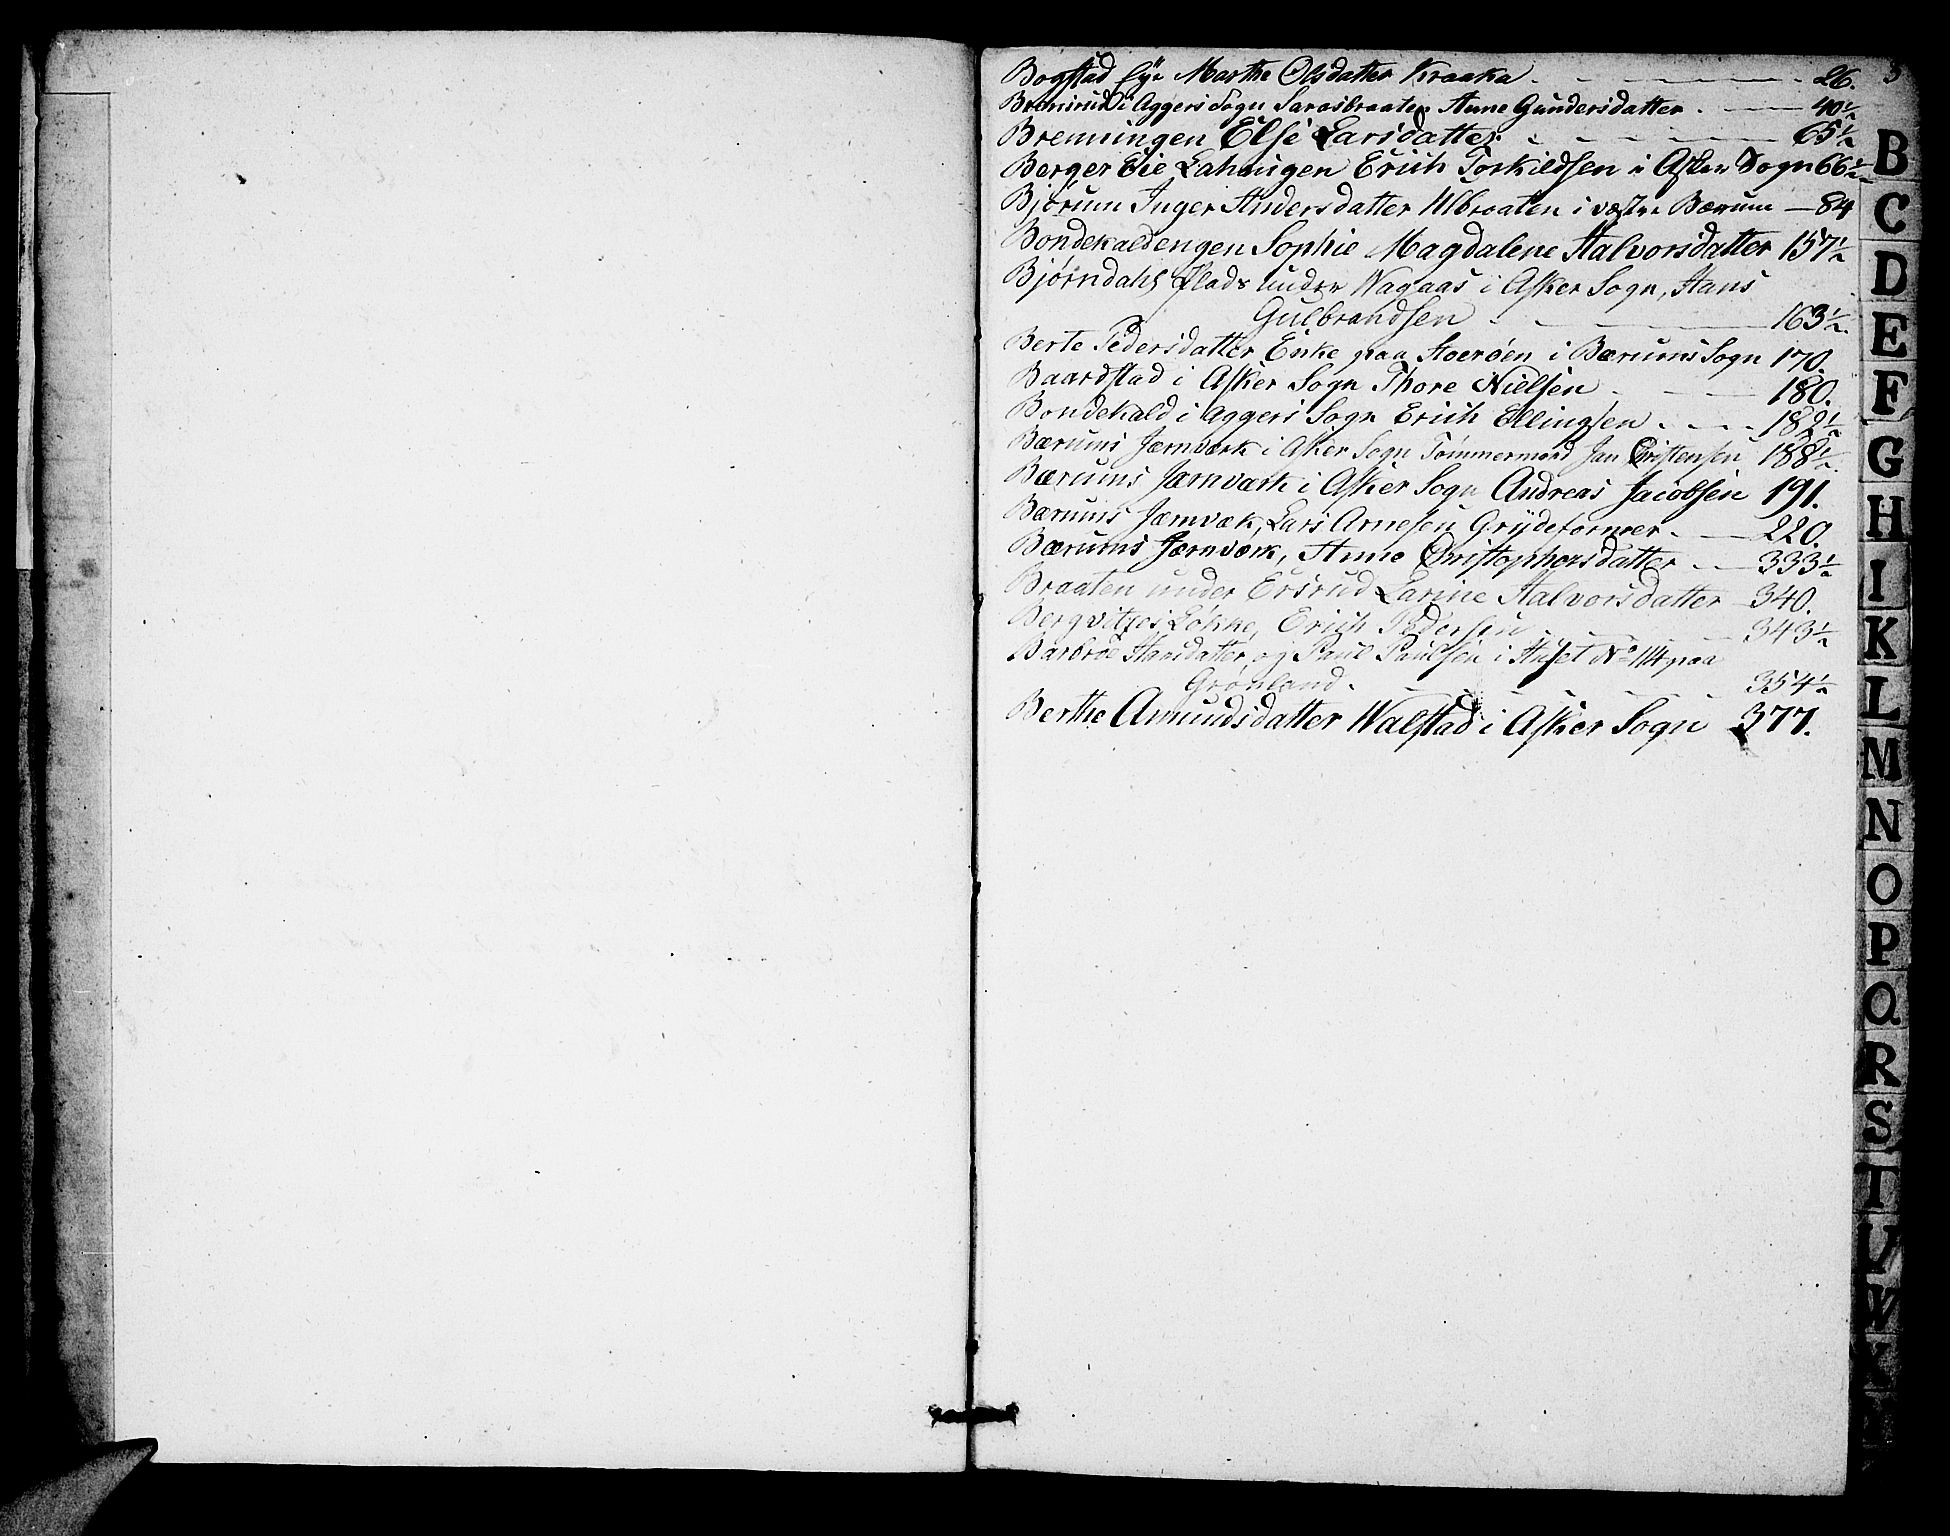 Bogstad Marthe Olsdatter Kraaka - - - - 26. 3
Brenisrud i Aggers Sogn Sarasbraaten Anne Gundersdatter - - 40½
Brenningen Else Larsdatter - - - - 65½
Berger Eie Lahaugen Erich Torkildsen i Asker Sogn 66½
Bjørum Inger Andersdatter Ulbraaten i væstre Bærum - 84
Bondekaldengen Sophie Magdalene Halvorsdatter 157½
Bjørndahls Plads under Wagaas i Asker Sogn, Hans
Gulbrandsen - - - - 163½.
Berte Pedersdatter Enke paa Stoerøen i Bærums Sogn 170.
Baardstad i Asker Sogn Thore Nielsen - - - 180.
Bondekald i Aggers Sogn Erich Ellingsen - - - 182½
Bærums Jærnværk i Asker Sogn Tømmermand Jan Cristensen 188½.
Bærums Jærnværk i Asker Sogn Andreas Jacobsen 191.
Bærums Jærnværk, Lars Arnesen Grydeformer. - 220.
Bærums Jærnværk, Anne Christophersdatter - - 333½
Braaten under Ersrud Larine Halvorsdatter - 340.
Bergvitzes Løkke, Erich Pedersen - - - 343½
Barbroe Hansdatter og Paul Paulsen i Huset No 114 paa
Grønland. - - - - 354½
Berthe Amundsdatter Walstad i Asker Sogn 377.
B
C
D
E
F
G
H
I
K
L
M
N
O
P
Q
R
S
T
U
W